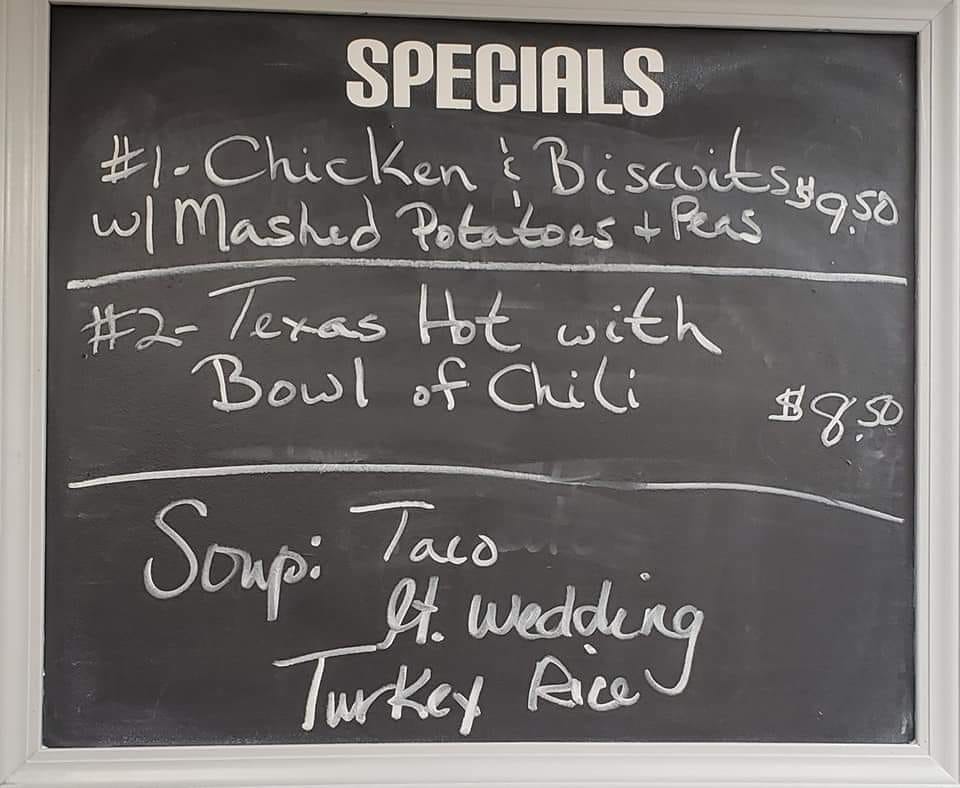 SPECIALS
#1-Chicken & Biscuits $9.50
w/ Mashed Potatoes + Peas
#2- Texas Hot with
Bowl of Chili $8.50
Soup: Taco
It. Wedding
Turkey Rice